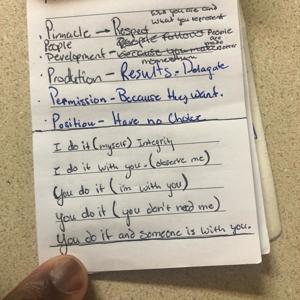 who you are and
what you represent
· Pinnacle → Respect
People People follows People are made
· Development - because you make matter
momentum
· Production - Results. Delagate
· Permission - Because they want.
· Position - Have no Choice
I do it (myself) Integrity
I do it with you. (observe me)
You do it (im with you)
You do it (you don't need me)
You do it and someone is with you.